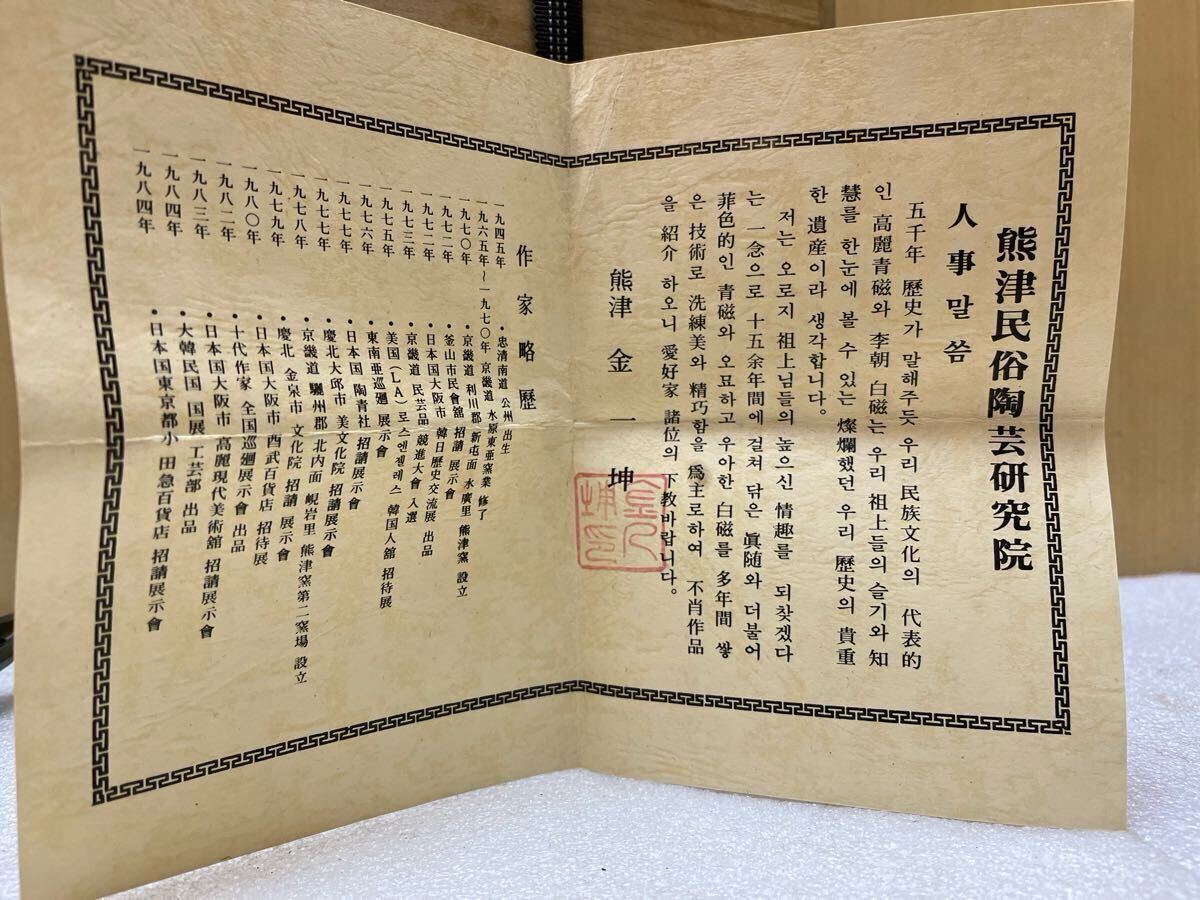 熊津民俗陶芸研究院
人事말씀
五千年 歷史가 말해주듯 우리 民族文化의 代表的
인 高麗青磁와 李朝 白磁는 우리 祖上들의 슬기와 知
慧를 한눈에 볼 수 있는 燦爛했던 우리 歷史의 貴重
한 遺産이라 생각합니다。
저는 오로지 祖上님들의 높으신 情趣를 되찾겠다
는 一念으로 十五余年間에 걸쳐 닦은 眞随와 더불어
菲色的인 青磁와 오묘하고 우아한 白磁를 多年間 쌓
은 技術로 洗練美와 精巧함을 爲主로하여 不肖作品
을 紹介 하오니 愛好家 諸位의 下教바랍니다。
熊津 金 一 坤
作家略歷
一九四五年 •忠清南道 公州 出生
一九六五年~一九七〇年 京畿道 水原東亜窯業 修了
一九七〇年 •京畿道 利川郡 新屯面 水廣里 熊津窯 設立
一九七二年 •釜山市民會舘 招請 展示會
一九七二年 •日本国大阪市 韓日歷史交流展 出品
一九七三年 •京畿道 民芸品 競進大會 入選
一九七五年 •美国(LA)로스엔젤레스 韓国人舘 招待展
一九七六年 •東南亜巡廻 展示會
一九七七年 •日本国 陶青社 招請展示會
一九七七年 •慶北大邱市 美文化院 招請展示會
一九七八年 •京畿道 驪州郡 北内面 峴岩里 熊津窯第二窯場 設立
一九七九年 •慶北 金泉市 文化院 招請 展示會
一九八〇年 •日本国大阪市 酉武百貨店 招待展
一九八二年 •十代作家 全国巡廻展示會 出品
一九八三年 •日本国大阪市 高麗現代美術舘 招請展示會
一九八四年 •大韓民国 国展 工芸部 出品
一九八四年 •日本国東京都小田急百貨店 招請展示會